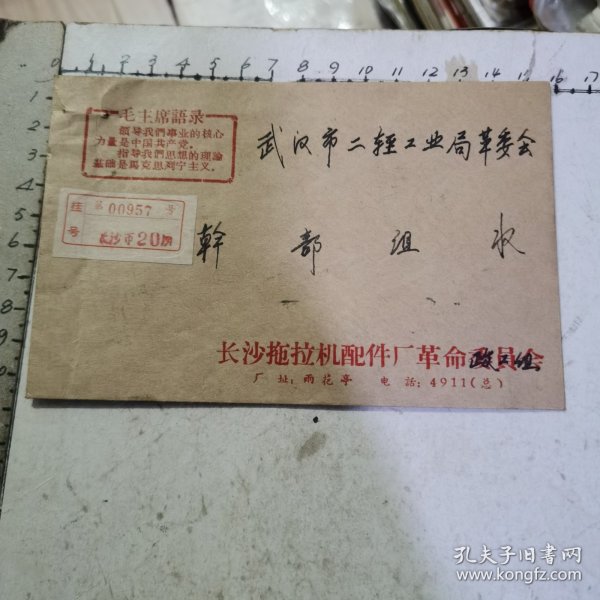 0 1 2 3 4 5 6 7 8 9 10 11 12 13 14 15 16 17
毛主席語录
領导我們事业的核心
力量是中国共产党。
指导我們思想的理論
基礎是馬克思列宁主义。
武汉市二轻工业局革委会
挂号
第00957号
长沙市20
幹部组收
长沙拖拉机配件厂革命委员会
政工组
厂址:雨花亭 电話:4911(总)
孔夫子旧书网
www.kongfz.com